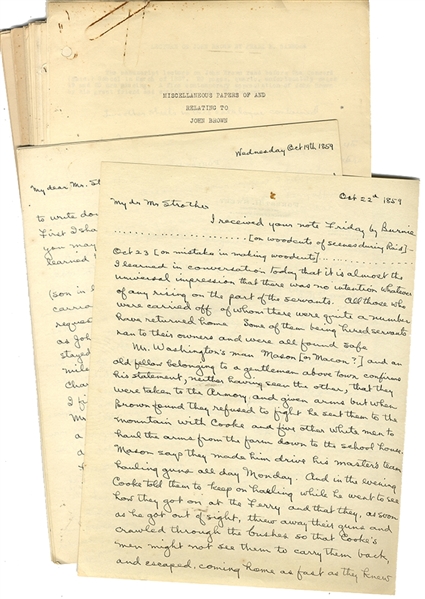 MISCELLANEOUS PAPERS OF AND
RELATING TO
JOHN BROWN
Wednesday Oct 19th, 1859
My dear Mr. St
to write do
First I sha
you may
learned
(son in l
carria
reque
as Joh
stayed
mile
Cha
I fi
Mr
a
a
Oct 22d 1859
My dr Mr Strother
I received your note Friday by Burnie.
[on woodcuts of scenes during Raid]-
Oct 23 [on mistake in making woodcuts]
I learned in conversation today that it is almost the
universal impression that there was no intention whatever
of any rising on the part of the servants. All those who
were carried off of whom there were quite a number
have returned home. Some of them being hired servants
ran to their owners and were all found safe
Mr. Washington's man Mason [or Macon?] and an
old fellow belonging to a gentleman above town confirms
his statement, neither having seen the other, that they
were taken to the Armory, and given arms but when
Brown found they refused to fight he sent them to the
mountain with Cooke and five other white men to
haul the arms from the farm down to the school house.
Mason says they made him drive his masters team
hauling guns all day Monday. And in the evening
Cooke told them to keep on hauling while he went to see
how they got on at the Ferry and that they, as soon
as he got out of sight, threw away their guns and
crawled through the bushes so that Cooke's
men might not see them to carry them back,
and escaped, coming home as fast as they knew